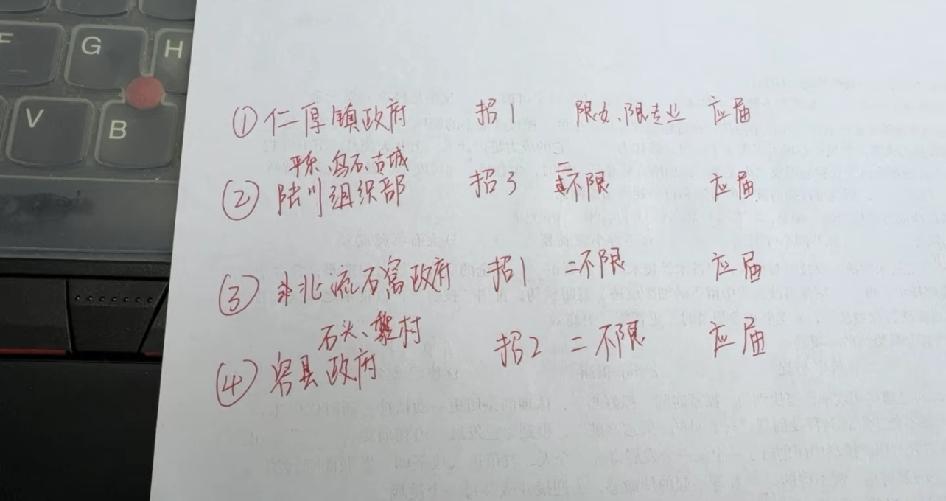 F G H
V B
①仁厚镇政府 招1 限女、限专业 应届
平乐、乌石、古城
②陆川组织部 招3 二不限 应届
③北流石窝政府 招1 二不限 应届
石头、黎村
④容县政府 招2 二不限 应届